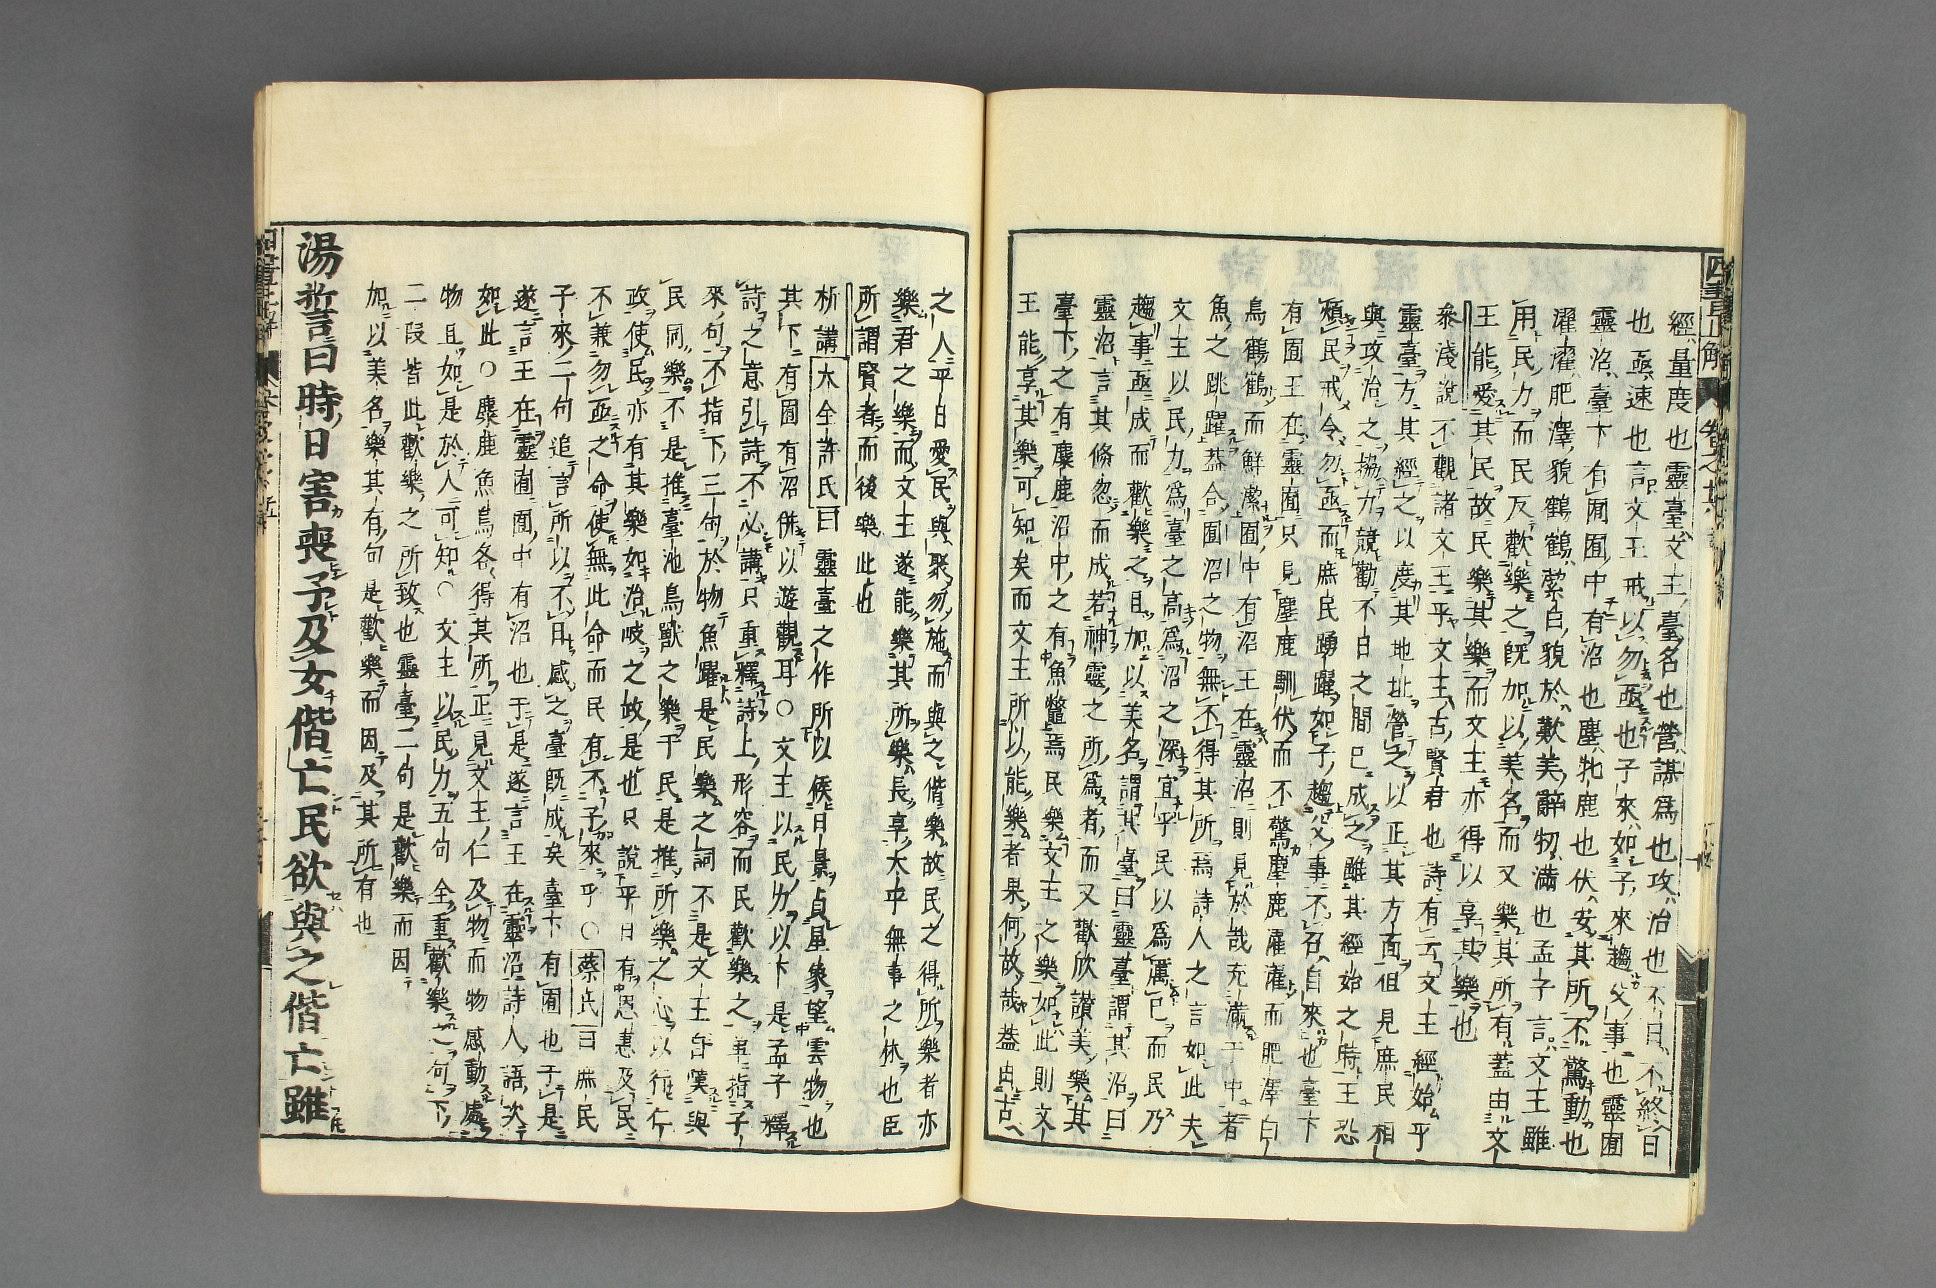 經量度也靈臺文王臺名也營謀爲也攻治也不日不終日
也亟速也言文王戒以勿亟也子來如子來趨父事也靈囿
靈沼臺下有囿囿中有沼也麀牝鹿也伏安其所不驚動也
濯濯肥澤貌鶴鶴潔白貌於歎美辭牣滿也孟子言文王雖
用民力而民反歡樂之既加以美名而又樂其所有蓋由文
王能愛其民故民樂其樂而文王亦得以享其樂也
叅淺說不觀諸文王乎文王古賢君也詩有云文王經始乎
靈臺方其經之以度其地址營之以正其方面但見庶民相
與攻治之協力競勸不日之間已成之雖其經始之時王恐
煩民戒令勿亟而庶民踴躍如子趨父事不召自來也臺下
有囿王在靈囿只見麀鹿馴伏而不驚麀鹿濯濯而肥澤白
鳥鶴鶴而鮮潔囿中有沼王在靈沼則見於哉充滿于中者
魚之跳躍葢合囿沼之物無不得其所焉詩人之言如此夫
文王以民力爲臺之高爲沼之深宜乎民以爲厲已而民乃
趨事亟成而歡樂之且加以美名謂其臺曰靈臺謂其沼曰
靈沼言其倏忽而成若神靈之所爲者而又歡欣讚美樂其
臺下之有麋鹿沼中之有魚鱉焉民樂文王之樂如此則文
王能享其樂可知矣而文王所以能樂者果何故哉葢由古
之人平日愛民與聚勿施而與之偕樂故民之得所樂者亦
樂君之樂而文王遂能樂其所樂長享太平無事之休也臣
所謂賢者而後樂此也
析講大全許氏曰靈臺之作所以候日景占星象望雲物也
其下有囿有沼倂以遊觀耳○文王以民力以下是孟子釋
詩之意引詩不必講只重釋詩上形容而民歡樂之與指子
來句不指下三句於物魚躍是民樂之詞不是文王自嘆與
民同樂不是推臺池鳥獸之樂于民是推所樂之心以行仁
政使民亦有其樂如治岐之政是也只說平日有恩惠及民
不兼勿亟之命使無此命而民有不子來乎○蔡氏曰庶民
子來二句追言所以不日感之臺既成矣臺下有囿也于是
遂言王在靈囿囿中有沼也于是遂言王在靈沼詩人語次
如此○麋鹿魚鳥各得其所正見文王仁及物而物感動處
物且如是於人可知○文王以民力五句全重歡樂之句下
二段皆此歡樂之所致也靈臺二句是歡樂而因
加以美名樂其有句是歡樂而因及其所有也
湯誓曰時日害喪予及女偕亡民欲與之偕亡雖